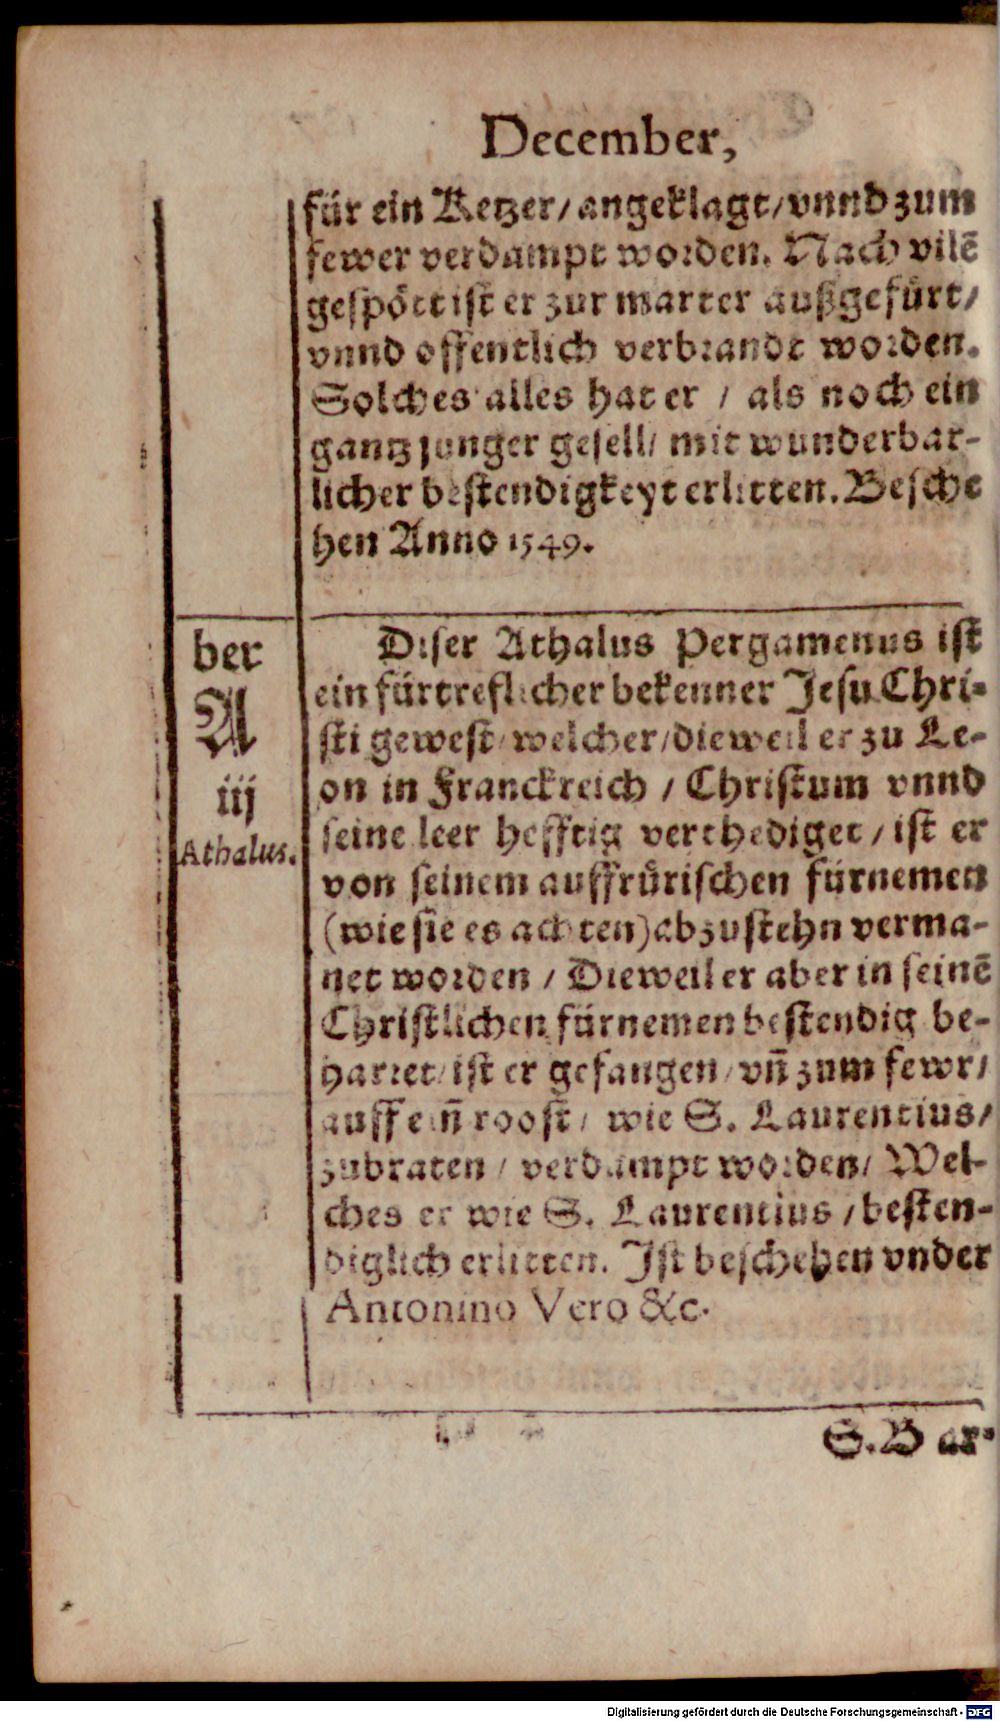 December,
für ein Ketzer/ angeklagt/ vnnd zum
fewer verdampt worden. Nach vilē
gespött ist er zur marter außgefürt/
vnnd offentlich verbrandt worden.
Solches alles hat er / als noch ein
gantz junger gesell/ mit wunderbar-
licher bestendigkeyt erlitten. Besche
hen Anno 1549.
ber
A
iij
Athalus.
Diser Athalus Pergamenus ist
ein fürtreflicher bekenner Jesu Chri-
sti gewest/ welcher/ dieweil er zu Le-
on in Franckreich / Christum vnnd
seine leer hefftig verthediget / ist er
von seinem auffrürischen fürnemen
(wie sie es achten) abzustehn verma-
net worden / Dieweil er aber in seinē
Christlichen fürnemen bestendig be-
harret/ ist er gefangen/ vn̄ zum fewr/
auff ein̄ roost/ wie S. Laurentius/
zubraten / verdampt worden/ Wel-
ches er wie S. Laurentius / besten-
diglich erlitten. Ist beschehen vnder
Antonino Vero &c.
S. Bar-
Digitalisierung gefördert durch die Deutsche Forschungsgemeinschaft - DFG